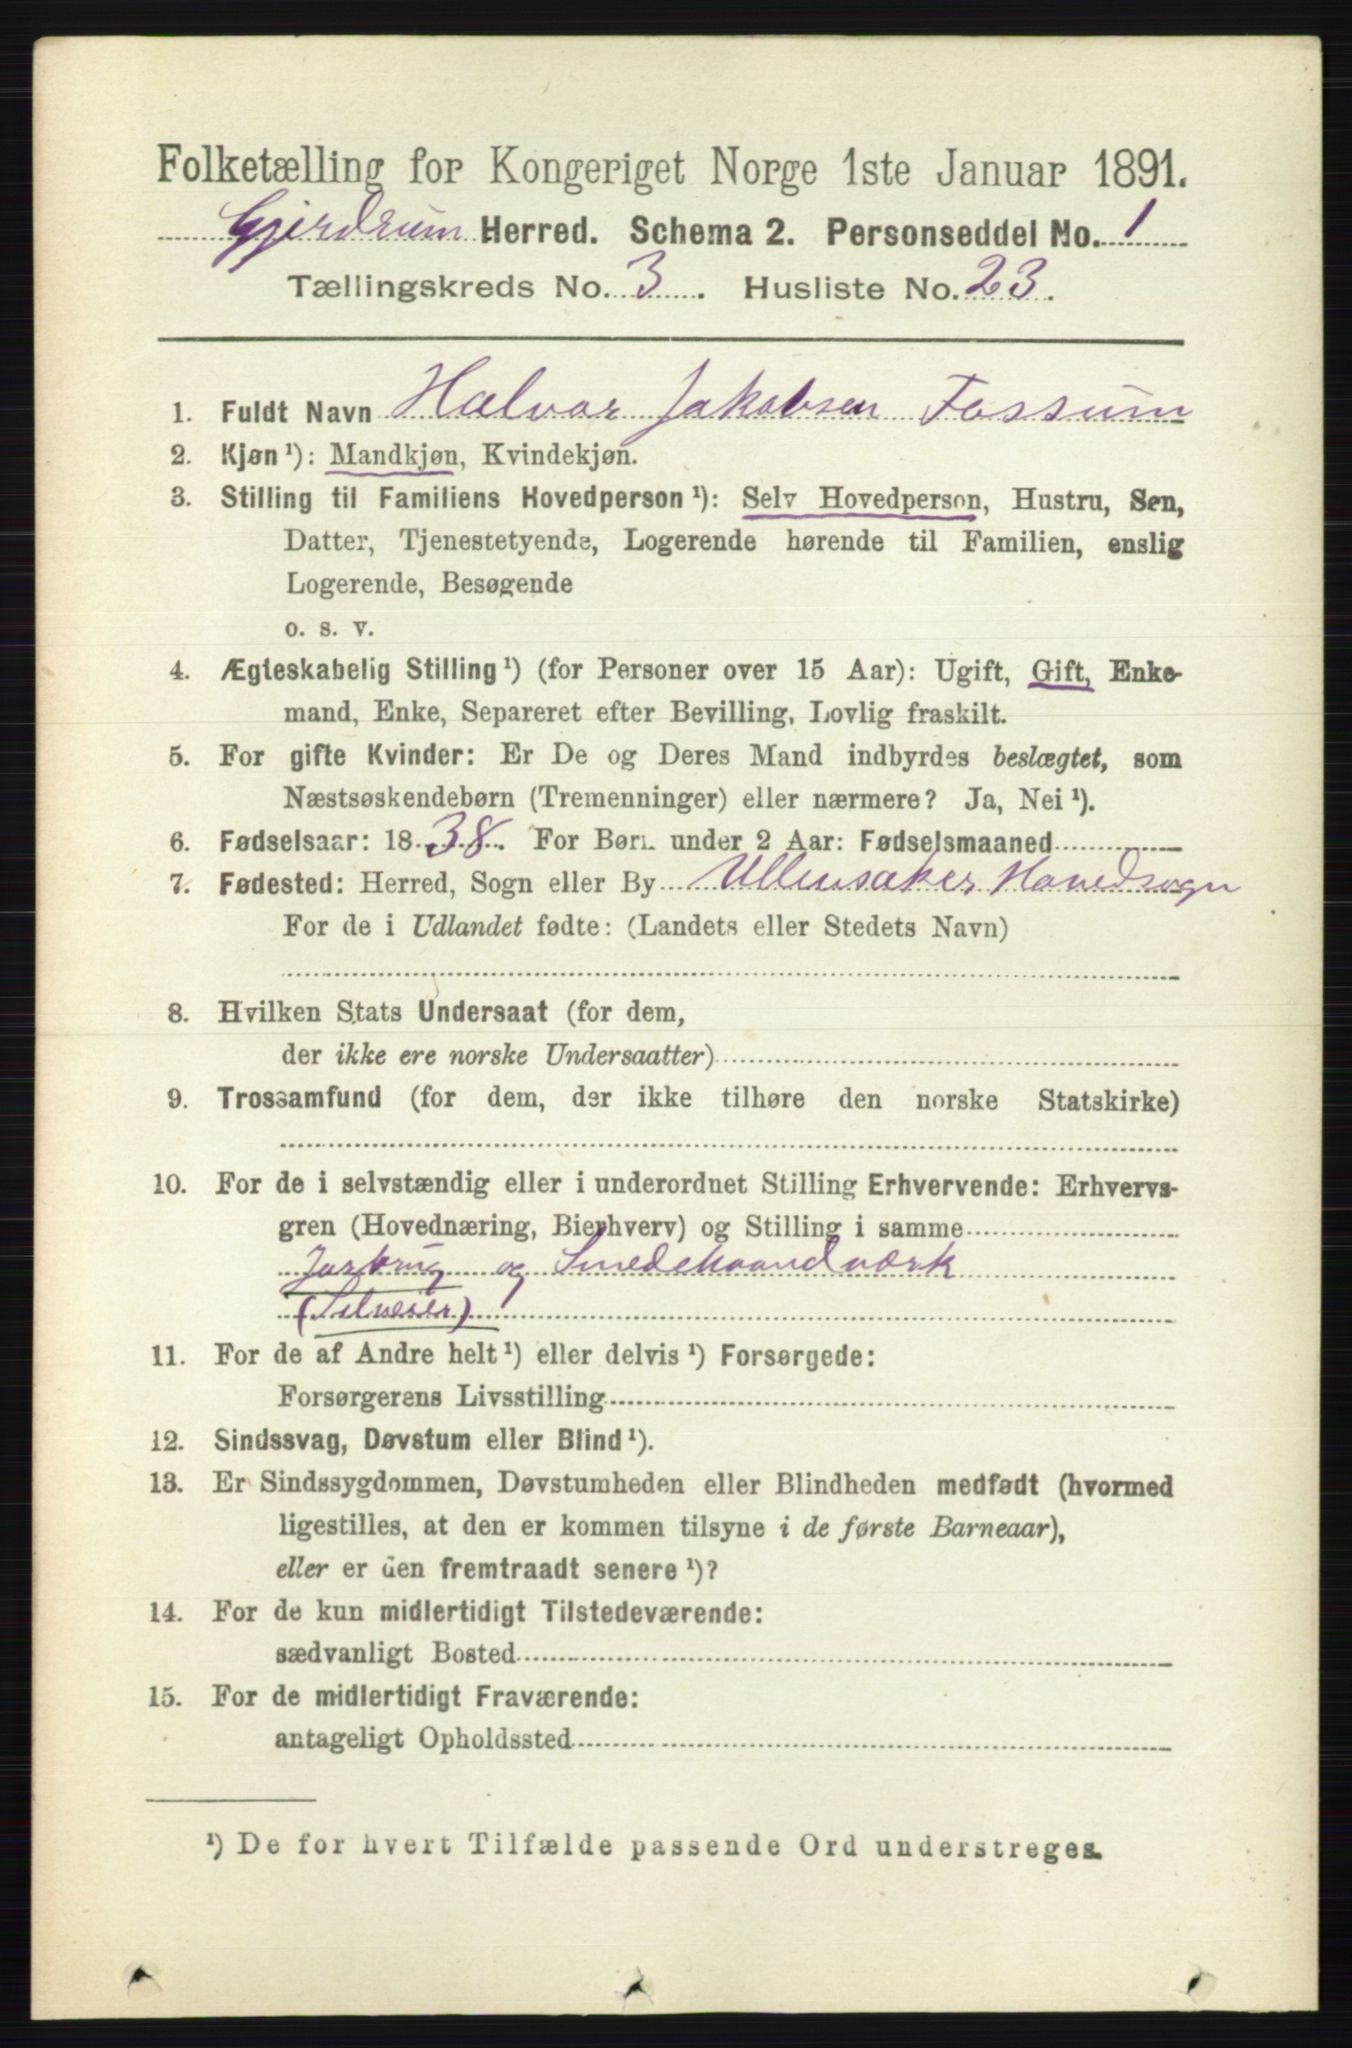 Folketælling for Kongeriget Norge 1ste Januar 1891.
Gjerdrum Herred. Schema 2. Personseddel No. 1
Tællingskreds No. 3. Husliste No. 23.
1. Fuldt Navn Halvor Jakobsen Fossum
2. Kjøn ¹): Mandkjøn, Kvindekjøn.
3. Stilling til Familiens Hovedperson ¹): Selv Hovedperson, Hustru, Søn,
Datter, Tjenestetyende, Logerende hørende til Familien, enslig
Logerende, Besøgende
o. s. v.
4. Ægteskabelig Stilling ¹) (for Personer over 15 Aar): Ugift, Gift, Enke-
mand, Enke, Separeret efter Bevilling, Lovlig fraskilt.
5. For gifte Kvinder: Er De og Deres Mand indbyrdes beslægtet, som
Næstsøskendebørn (Tremenninger) eller nærmere? Ja, Nei ¹).
6. Fødselsaar: 1838. For Børn under 2 Aar: Fødselsmaaned
7. Fødested: Herred, Sogn eller By Ullensaker Hovedsogn
For de i Udlandet fødte: (Landets eller Stedets Navn)
8. Hvilken Stats Undersaat (for dem,
der ikke ere norske Undersaatter)
9. Trossamfund (for dem, der ikke tilhøre den norske Statskirke)
10. For de i selvstændig eller i underordnet Stilling Erhvervende: Erhvervs-
gren (Hovednæring, Bierhverv) og Stilling i samme
Jorbrug og Smedehaandværk
(Selveier)
11. For de af Andre helt ¹) eller delvis ¹) Forsørgede:
Forsørgerens Livsstilling
12. Sindssvag, Døvstum eller Blind ¹).
13. Er Sindssygdommen, Døvstumheden eller Blindheden medfødt (hvormed
ligestilles, at den er kommen tilsyne i de første Barneaar),
eller er den fremtraadt senere ¹)?
14. For de kun midlertidigt Tilstedeværende:
sædvanligt Bosted
15. For de midlertidigt Fraværende:
antageligt Opholdssted
¹) De for hvert Tilfælde passende Ord understreges.